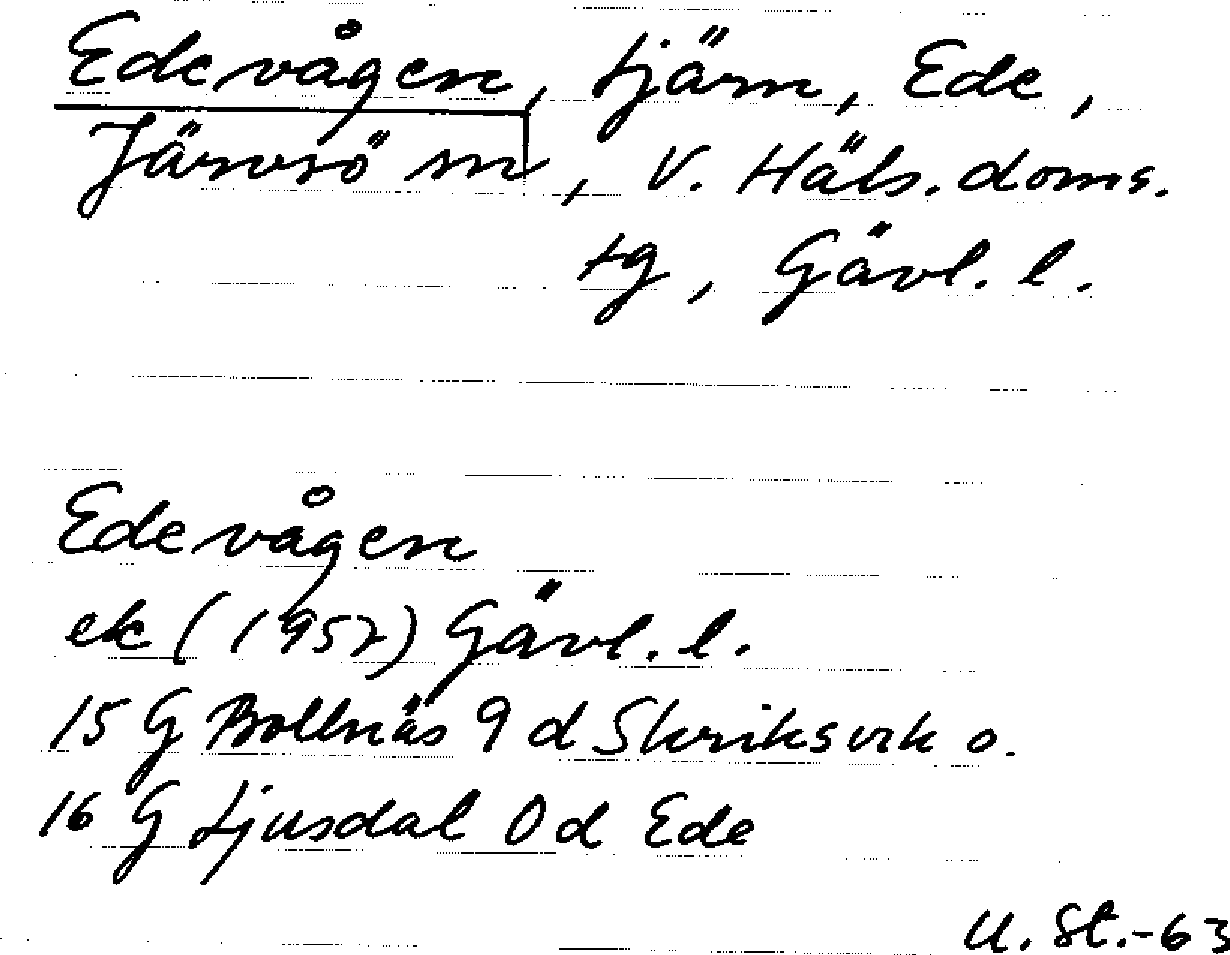 Edevågen, tjärn, Ede,
Järvsö sn, V. Häls. doms.
tg, Gävl. l.
Edevågen
ek (1957) Gävl. l.
15 G Bollnäs 9 d Skriksvik o.
16 G Ljusdal 0 d Ede
U. St.-63